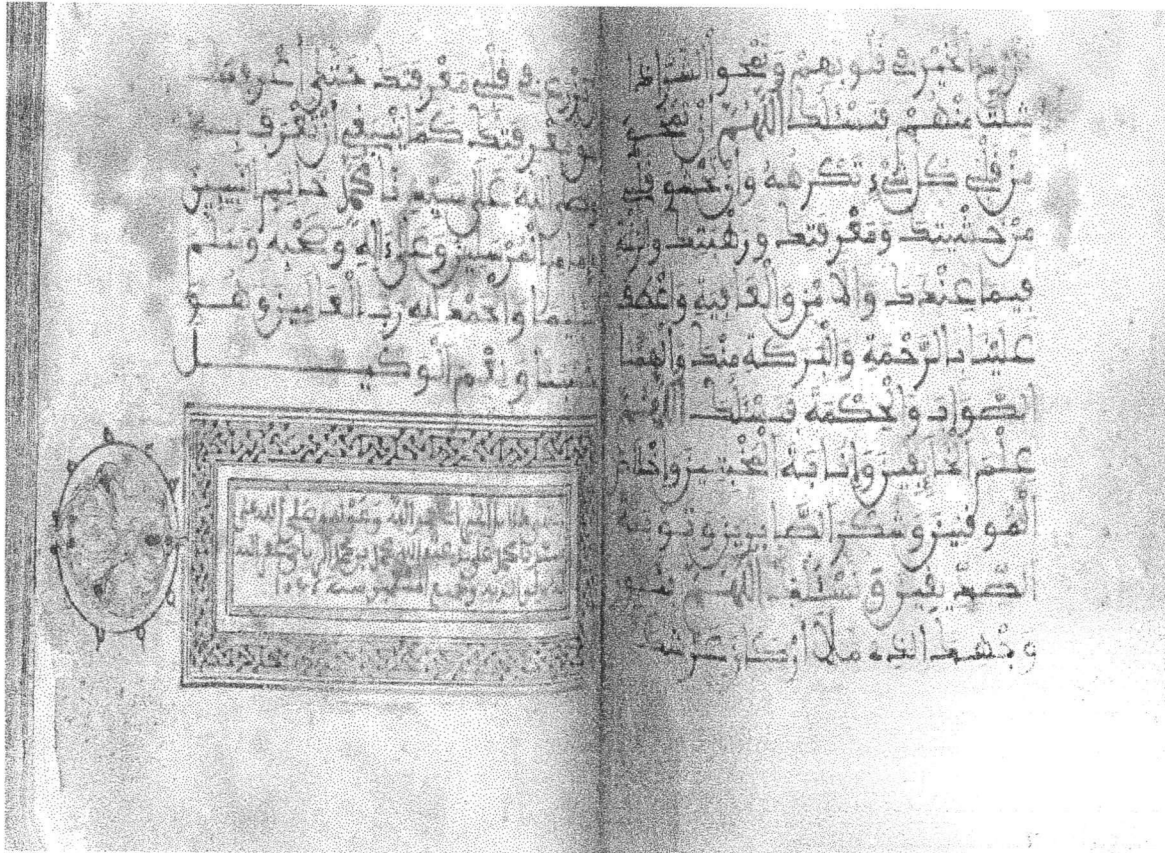 تزرع الخير في قلوبهم وتمحو الشر إذا
شئت منهم فنسئلك اللهم أن تمحو
من قلبي كل شيء تكرهه وأن تحشو قلبي
من خشيتك ومعرفتك ورهبتك والرغبة
فيما عندك والامن والعافية واعطف
علينا بالرحمة والبركة منك والهمنا
الصواب والحكمة فنسئلك اللهم
علم الخايفين وإنابة المخبتين وإخلاص
الموقنين وشكر الصابرين وتوبة
الصديقين ونسئلك اللهم بنور
وجهك الذي ملأ أركان عرشك
تزرع في قلبي معرفتك حتى أعرفك
حق معرفتك كما ينبغي أن تعرف به
وصلى الله على سيدنا محمد خاتم النبيين
وإمام المرسلين وعلى ءاله وصحبه وسلم
تسليما والحمد لله رب العالمين وهو
حسبنا ونعم الوكيل
صلى الله على
عبد الله محمد بن محمد
ولوالديه ولجميع المسلمين سنة